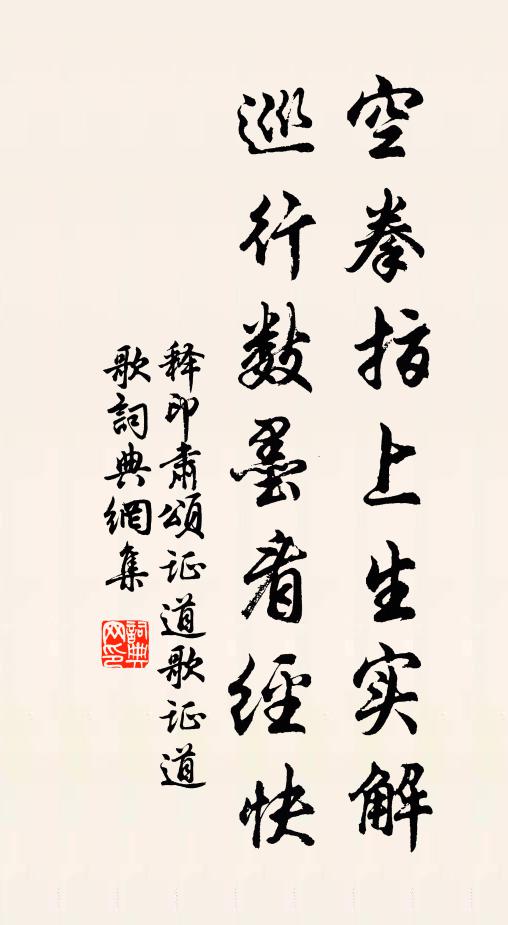 空拳指上生实解
巡行数墨看經快
释印肅頌证道歌证道
歌詞典網集
詞典网印